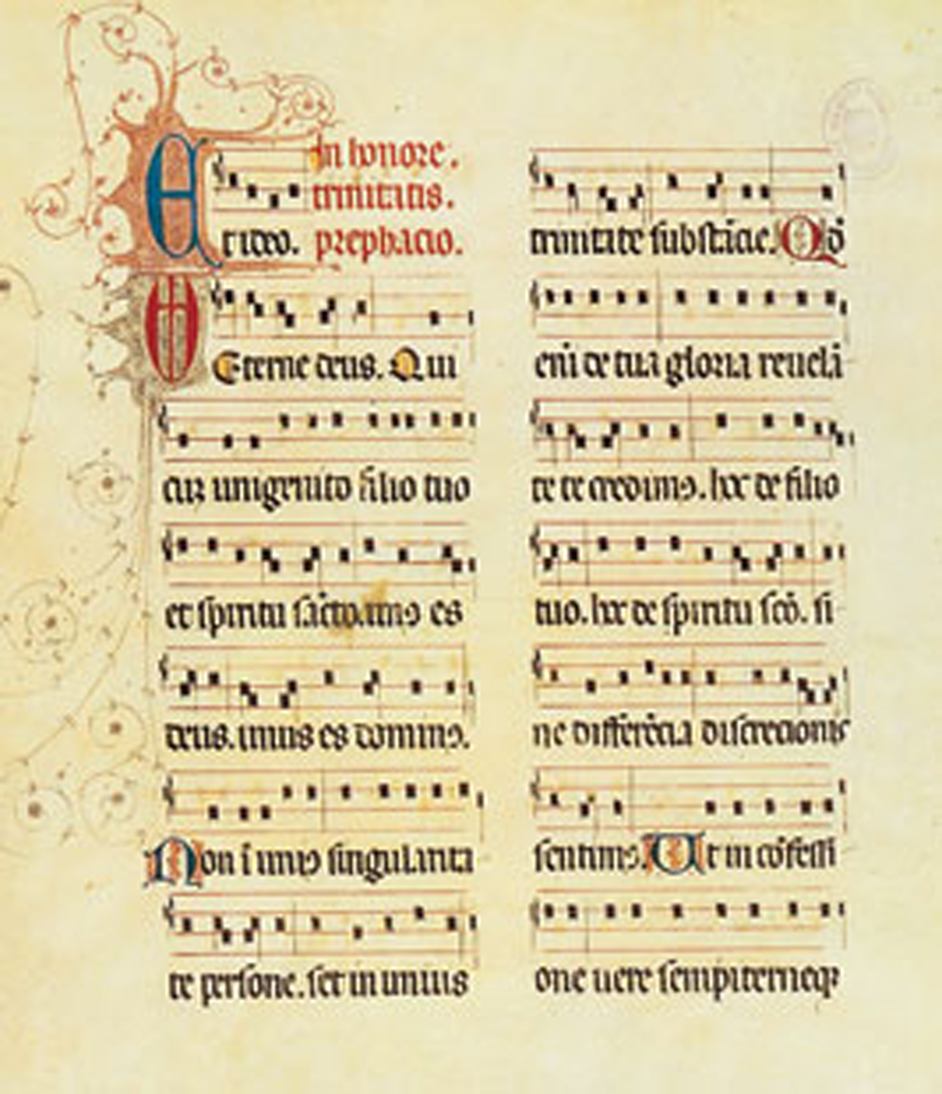 In honore.
trinitatis.
Et ideo. prephacio.
Eterne deus. Qui
cuz unigenito filio tuo
et spiritu sãcto. unꝰ es
deus. unus es dominꝰ.
Non ĩ uniꝰ singularita
te persone. set in unius
trinitate substãcie. Qõ
eni de tua gloria reuelã
te te credimꝰ. hoc de filio
tuo. hoc de spiritu scõ. si
ne differẽcia discrecionis
sentimꝰ. Ut in cõfessi
one uere sempiterneqꝫ